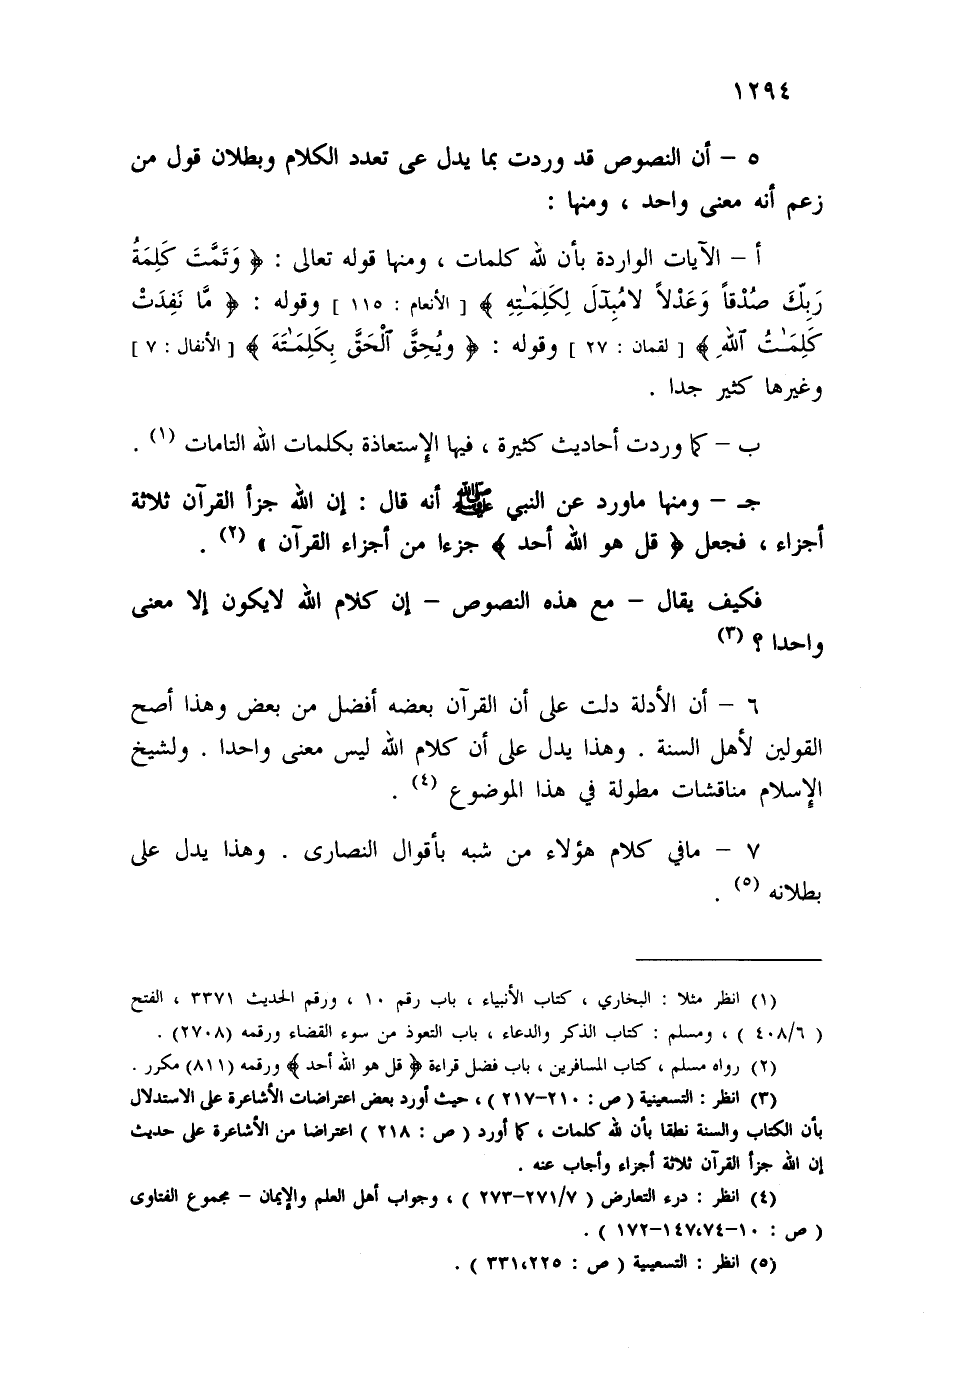 ١٢٩٤
٥ – أن النصوص قد وردت بما يدل عى تعدد الكلام وبطلان قول من
زعم أنه معنى واحد ، ومنها :
أ – الآيات الواردة بأن لله كلمات ، ومنها قوله تعالى : ﴿ وَتَمَّتَ كَلِمَةُ
رَبِّكَ صُدْقاً وَعَدْلاً لامُبِدّلَ لِكَلِمَـٰتِهِ ﴾ [ الأنعام : ١١٥ ] وقوله : ﴿ مَّا نَفِدَتْ
كَلِمَـٰتُ ٱللهِ ﴾ [ لقمان : ٢٧ ] وقوله : ﴿ ويُحِقَّ ٱلْحَقَّ بِكَلِمَـٰتَهَ ﴾ [ الأنفال : ٧ ]
وغيرها كثير جدا .
ب – كما وردت أحاديث كثيرة ، فيها الإستعاذة بكلمات الله التامات (١) .
جـ – ومنها ماورد عن النبي ﷺ أنه قال : إن الله جزأ القرآن ثلاثة
أجزاء ، فجعل ﴿ قل هو الله أحد ﴾ جزءا من أجزاء القرآن » (٢) .
فكيف يقال – مع هذه النصوص – إن كلام الله لايكون إلا معنى
واحدا ؟ (٣)
٦ – أن الأدلة دلت على أن القرآن بعضه أفضل من بعض وهذا أصح
القولين لأهل السنة . وهذا يدل على أن كلام الله ليس معنى واحدا . ولشيخ
الإسلام مناقشات مطولة في هذا الموضوع (٤) .
٧ – مافي كلام هؤلاء من شبه بأقوال النصارى . وهذا يدل على
بطلانه (٥) .
(١) انظر مثلا : البخاري ، كتاب الأنبياء ، باب رقم ١٠ ، ورقم الحديث ٣٣٧١ ، الفتح
( ٤٠٨/٦ ) ، ومسلم : كتاب الذكر والدعاء ، باب التعوذ من سوء القضاء ورقمه (٢٧٠٨) .
(٢) رواه مسلم ، كتاب المسافرين ، باب فضل قراءة ﴿ قل هو الله أحد ﴾ ورقمه (٨١١) مكرر .
(٣) انظر : التسعينية ( ص : ٢١٠–٢١٧ ) ، حيث أورد بعض اعتراضات الأشاعرة على الاستدلال
بأن الكتاب والسنة نطقا بأن لله كلمات ، كما أورد ( ص : ٢١٨ ) اعتراضا من الأشاعرة على حديث
إن الله جزأ القرآن ثلاثة أجزاء وأجاب عنه .
(٤) انظر : درء التعارض ( ٢٧١/٧–٢٧٣ ) ، وجواب أهل العلم والإيمان – مجموع الفتاوى
( ص : ١٠–١٤٧،٧٤–١٧٢ ) .
(٥) انظر : التسعينية ( ص : ٣٣١،٢٢٥ ) .